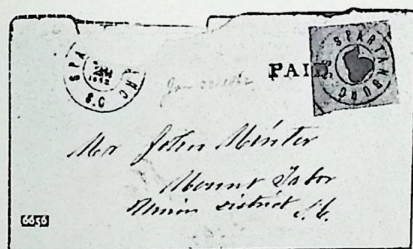 SPA ARG S.C
PAID.
SPARTANBURG
Mr John Minter
Mount Tabor
Union District S.C.
6656